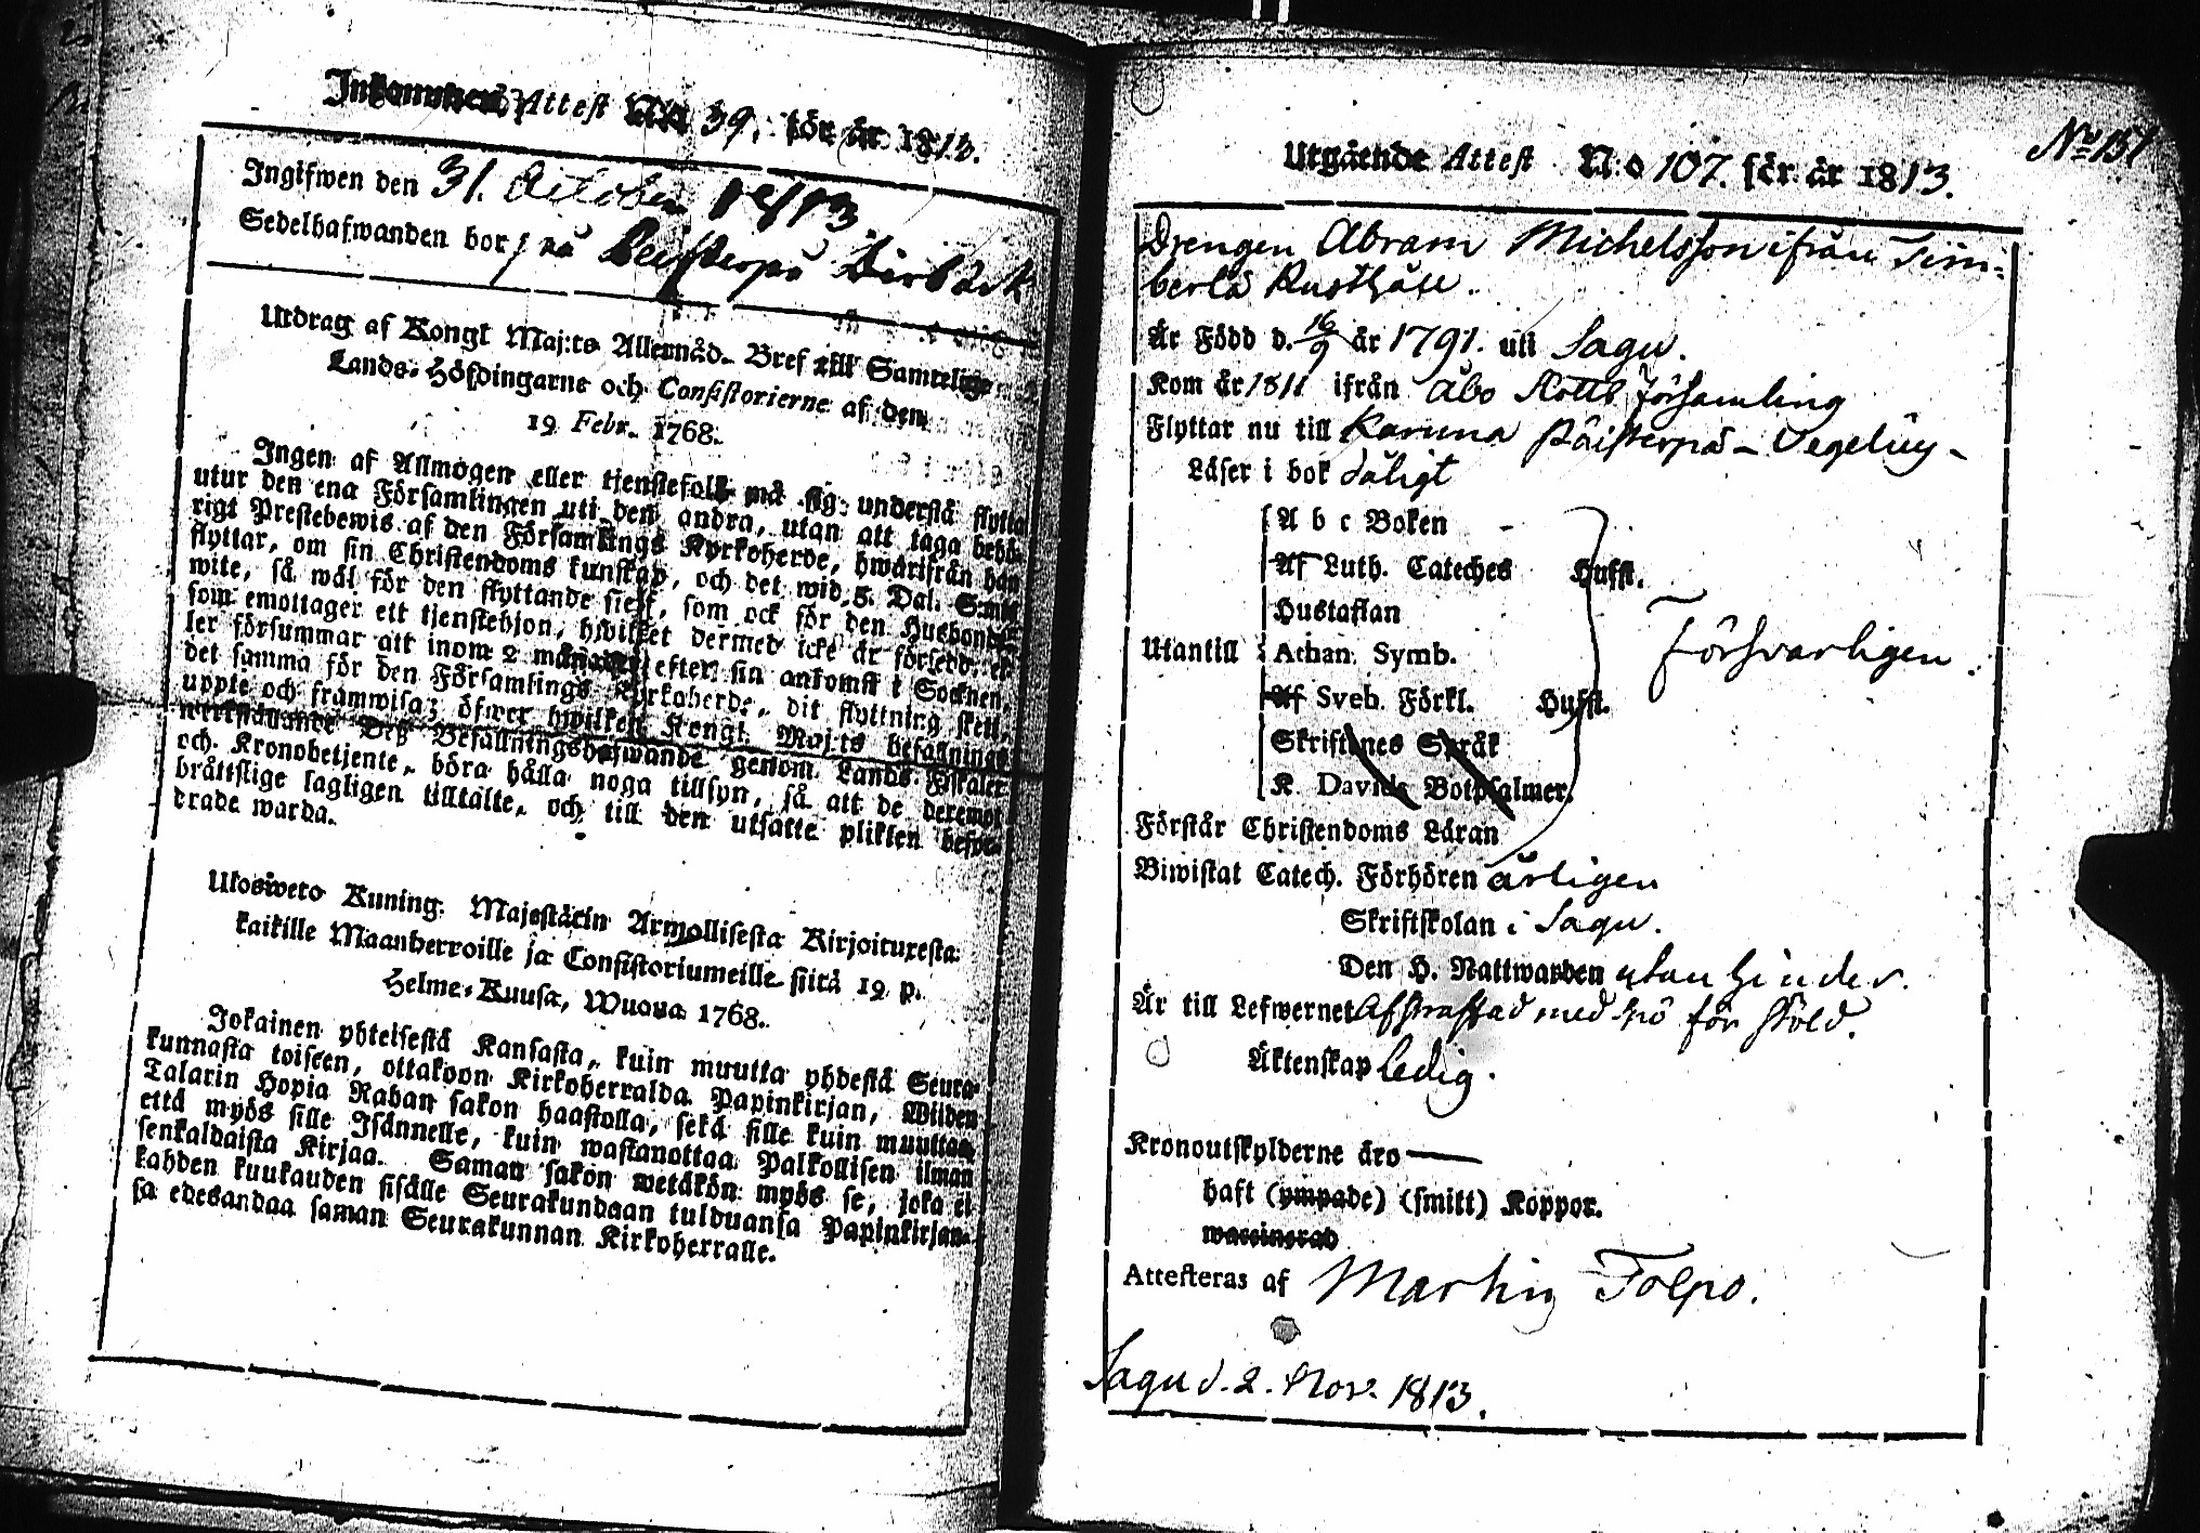 Inkommen Attest N:o 39. för år 1813.
Ingifwen den 31. October 1813
Sedelhafwanden bor på
Utdrag af Kongl Maj:ts Allernåd. Bref till Samtelige
Lands-Höfdingarne och Consistorierne af den
19 Febr. 1768.
Ingen af Allmogen eller tjenstefolk må sig understå flytta
utur den ena Församlingen uti den andra, utan att taga behö-
rigt Prestebewis af den Församlings Kyrkoherde, hwarifrån han
flyttar, om sin Christendoms kunskap, och det wid 5. Dal. S:mt
wite, så wäl för den flyttande sielf, som ock för den Husbonde
som emottager ett tjenstehjon, hwilket dermed icke är försedt, el-
ler försummar att inom 2 månader efter sin ankomst i Socknen,
det samma för den Församlings Kyrkoherde, dit flyttning skett,
uppte och framwisa; öfwer hwilken Kongl. Maj:ts befallnings
werkställande Deß Befallningshafwande genom Lands Fiskaler
och Kronobetjente, böra hålla noga tillsyn, så att de deremot
bråttslige lagligen tilltalte, och till den utsatte plikten befor-
drade warda.
Ulosweto Kuning. Majestätin Armollisesta Kirjoituxesta
kaikille Maanherroille ja Consistoriumeille siitä 19 p.
Helme-Kuusa, Wuona 1768.
Jokainen yhteisestä Kansasta, kuin muutta yhdestä Seura-
kunnasta toiseen, ottakoon Kirkoherralda Papinkirjan, Wiiden
Talarin Hopia Rahan sakon haastolla, sekä sille kuin muuttaa
että myös sille Isännelle, kuin wastanottaa Palkollisen ilman
senkaldaista Kirjaa. Saman sakon wetäkön myös se, joka ei
kahden kuukauden sisälle Seurakundaan tulduansa Papinkirjan-
sa edesandaa saman Seurakunnan Kirkoherralle.
No 151
Utgående Attest N:o 107. för år 1813.
Drengen Abram Michelsson ifrån Tim-
berla Rusthåll.
Är Född d. 16/9 år 1791. uti Sagu.
Kom år 1811 ifrån Åbo Slotts Församling
Flyttar nu till Karuna Päisterpä -
Läser i bok dåligt
A b c Boken
Af Luth. Cateches Husfl.
Hustaflan
Utantill Athan. Symb. Försvarligen.
Af Sveb. Förkl. Husfl.
Skriftenes Språk
K. Davids Botpsalmer.
Förstår Christendoms Läran
Biwistat Catech. Förhören årligen
Skriftskolan i Sagu.
Den H. Nattwarden utan hinder.
Är till Lefwernet Afstraffad med spö för stöld.
Äktenskap ledig.
Kronoutskylderne äro —
haft (ympade) (smitt) Koppor.
warcinerad
Attesteras af Martin Tolpo.
Sagu d. 2. Nov. 1813.